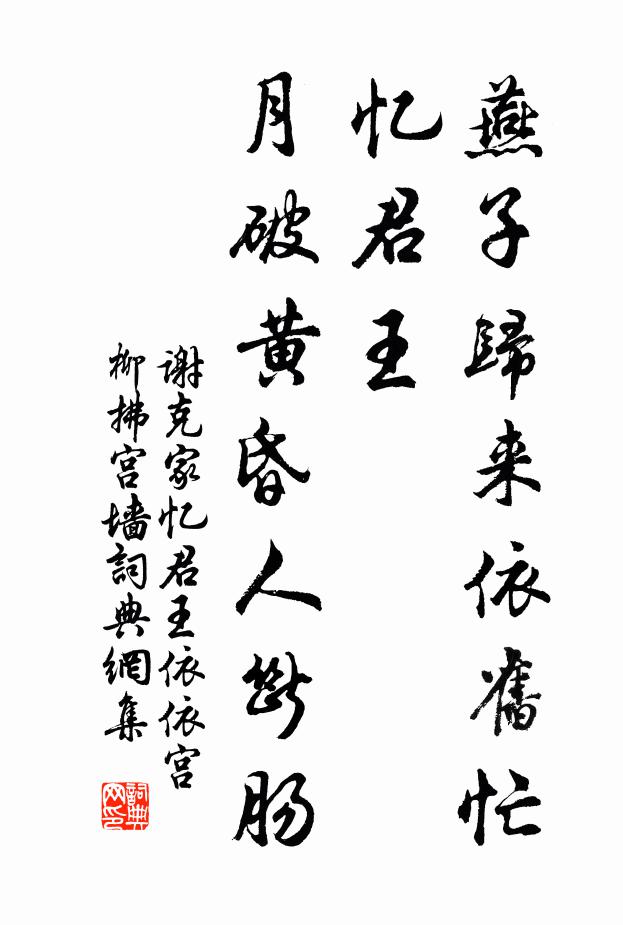 燕子歸来依舊忙
忆君王
月破黄昏人斷肠
谢克家忆君王依依宫
柳拂宫墙詞典網集
詞典
网印